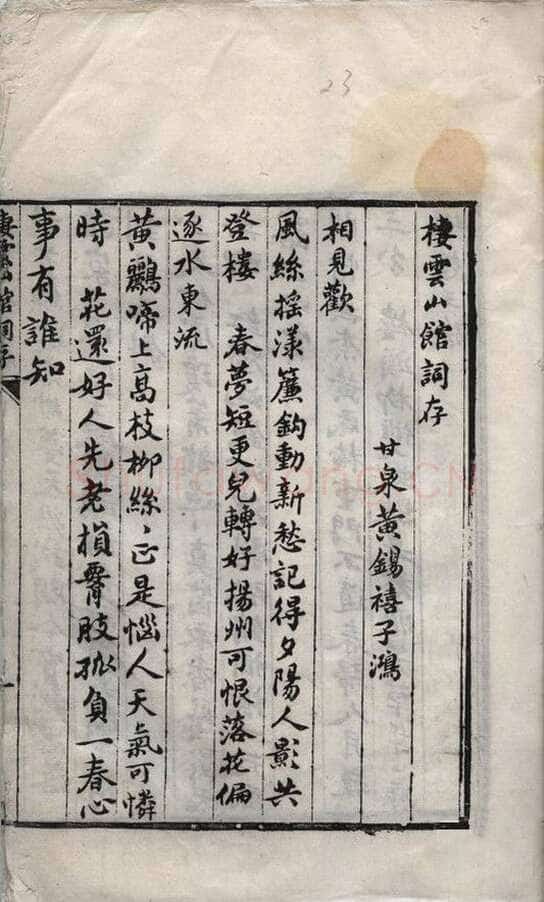 23
棲雲山館詞存
甘泉黃錫禧子鴻
相見歡
風絲搖漾簾鈎動新愁記得夕陽人影共
登樓　春夢短更兒轉好揚州可恨落花偏
逐水東流
黃鸝啼上高枝柳絲〻正是惱人天氣可憐
時　花還好人先老損膋肢孤負一春心
事有誰知
棲雲山館詞存